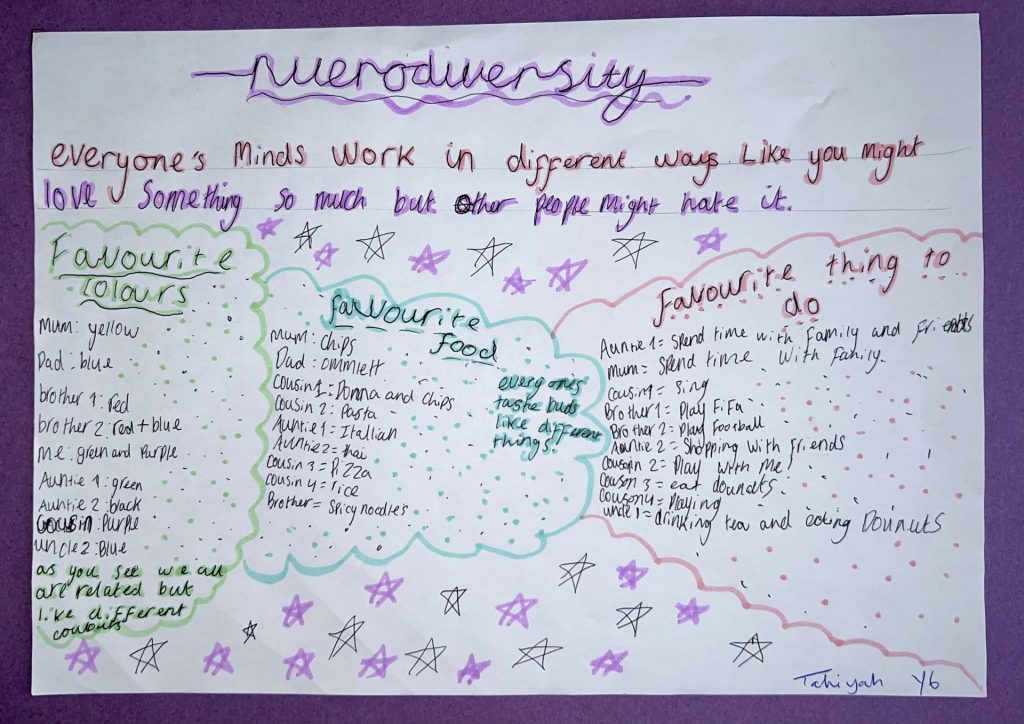 Nuerodiversity
everyone's Minds Work in different ways Like you might
love Something so much but Other people might hate it.
Favourite
colours
Mum: yellow
Dad: blue
brother 1: red
brother 2: red + blue
Me: green and Purple
Auntie 1: green
Auntie 2: black
Cousin: Purple
uncle 2: Blue
as you see we all
are related but
like different
colours
favourite
Food
Mum: chips
Dad: ommlett
Cousin 1: Donna and chips
Cousin 2: Pasta
Auntie 1 = Itallian
Auntie 2 = thai
Cousin 3 = Pizza
cousin 4 = rice
Brother = Spicy noodles
everyones
taste buds
like different
things!
Favourite thing to
do
Auntie 1 = Spend time with Family and friends
Mum = Spend time With family.
Cousin 1 = Sing
Brother 1 = Play FiFa
Brother 2 = Play Football
Auntie 2 = Shopping with friends
Couson 2 = Play with me
Couson 3 = eat dounuts.
Couson 4 = Playing
uncle 1 = drinking tea and eating Dounuts
Tahiyah Y6